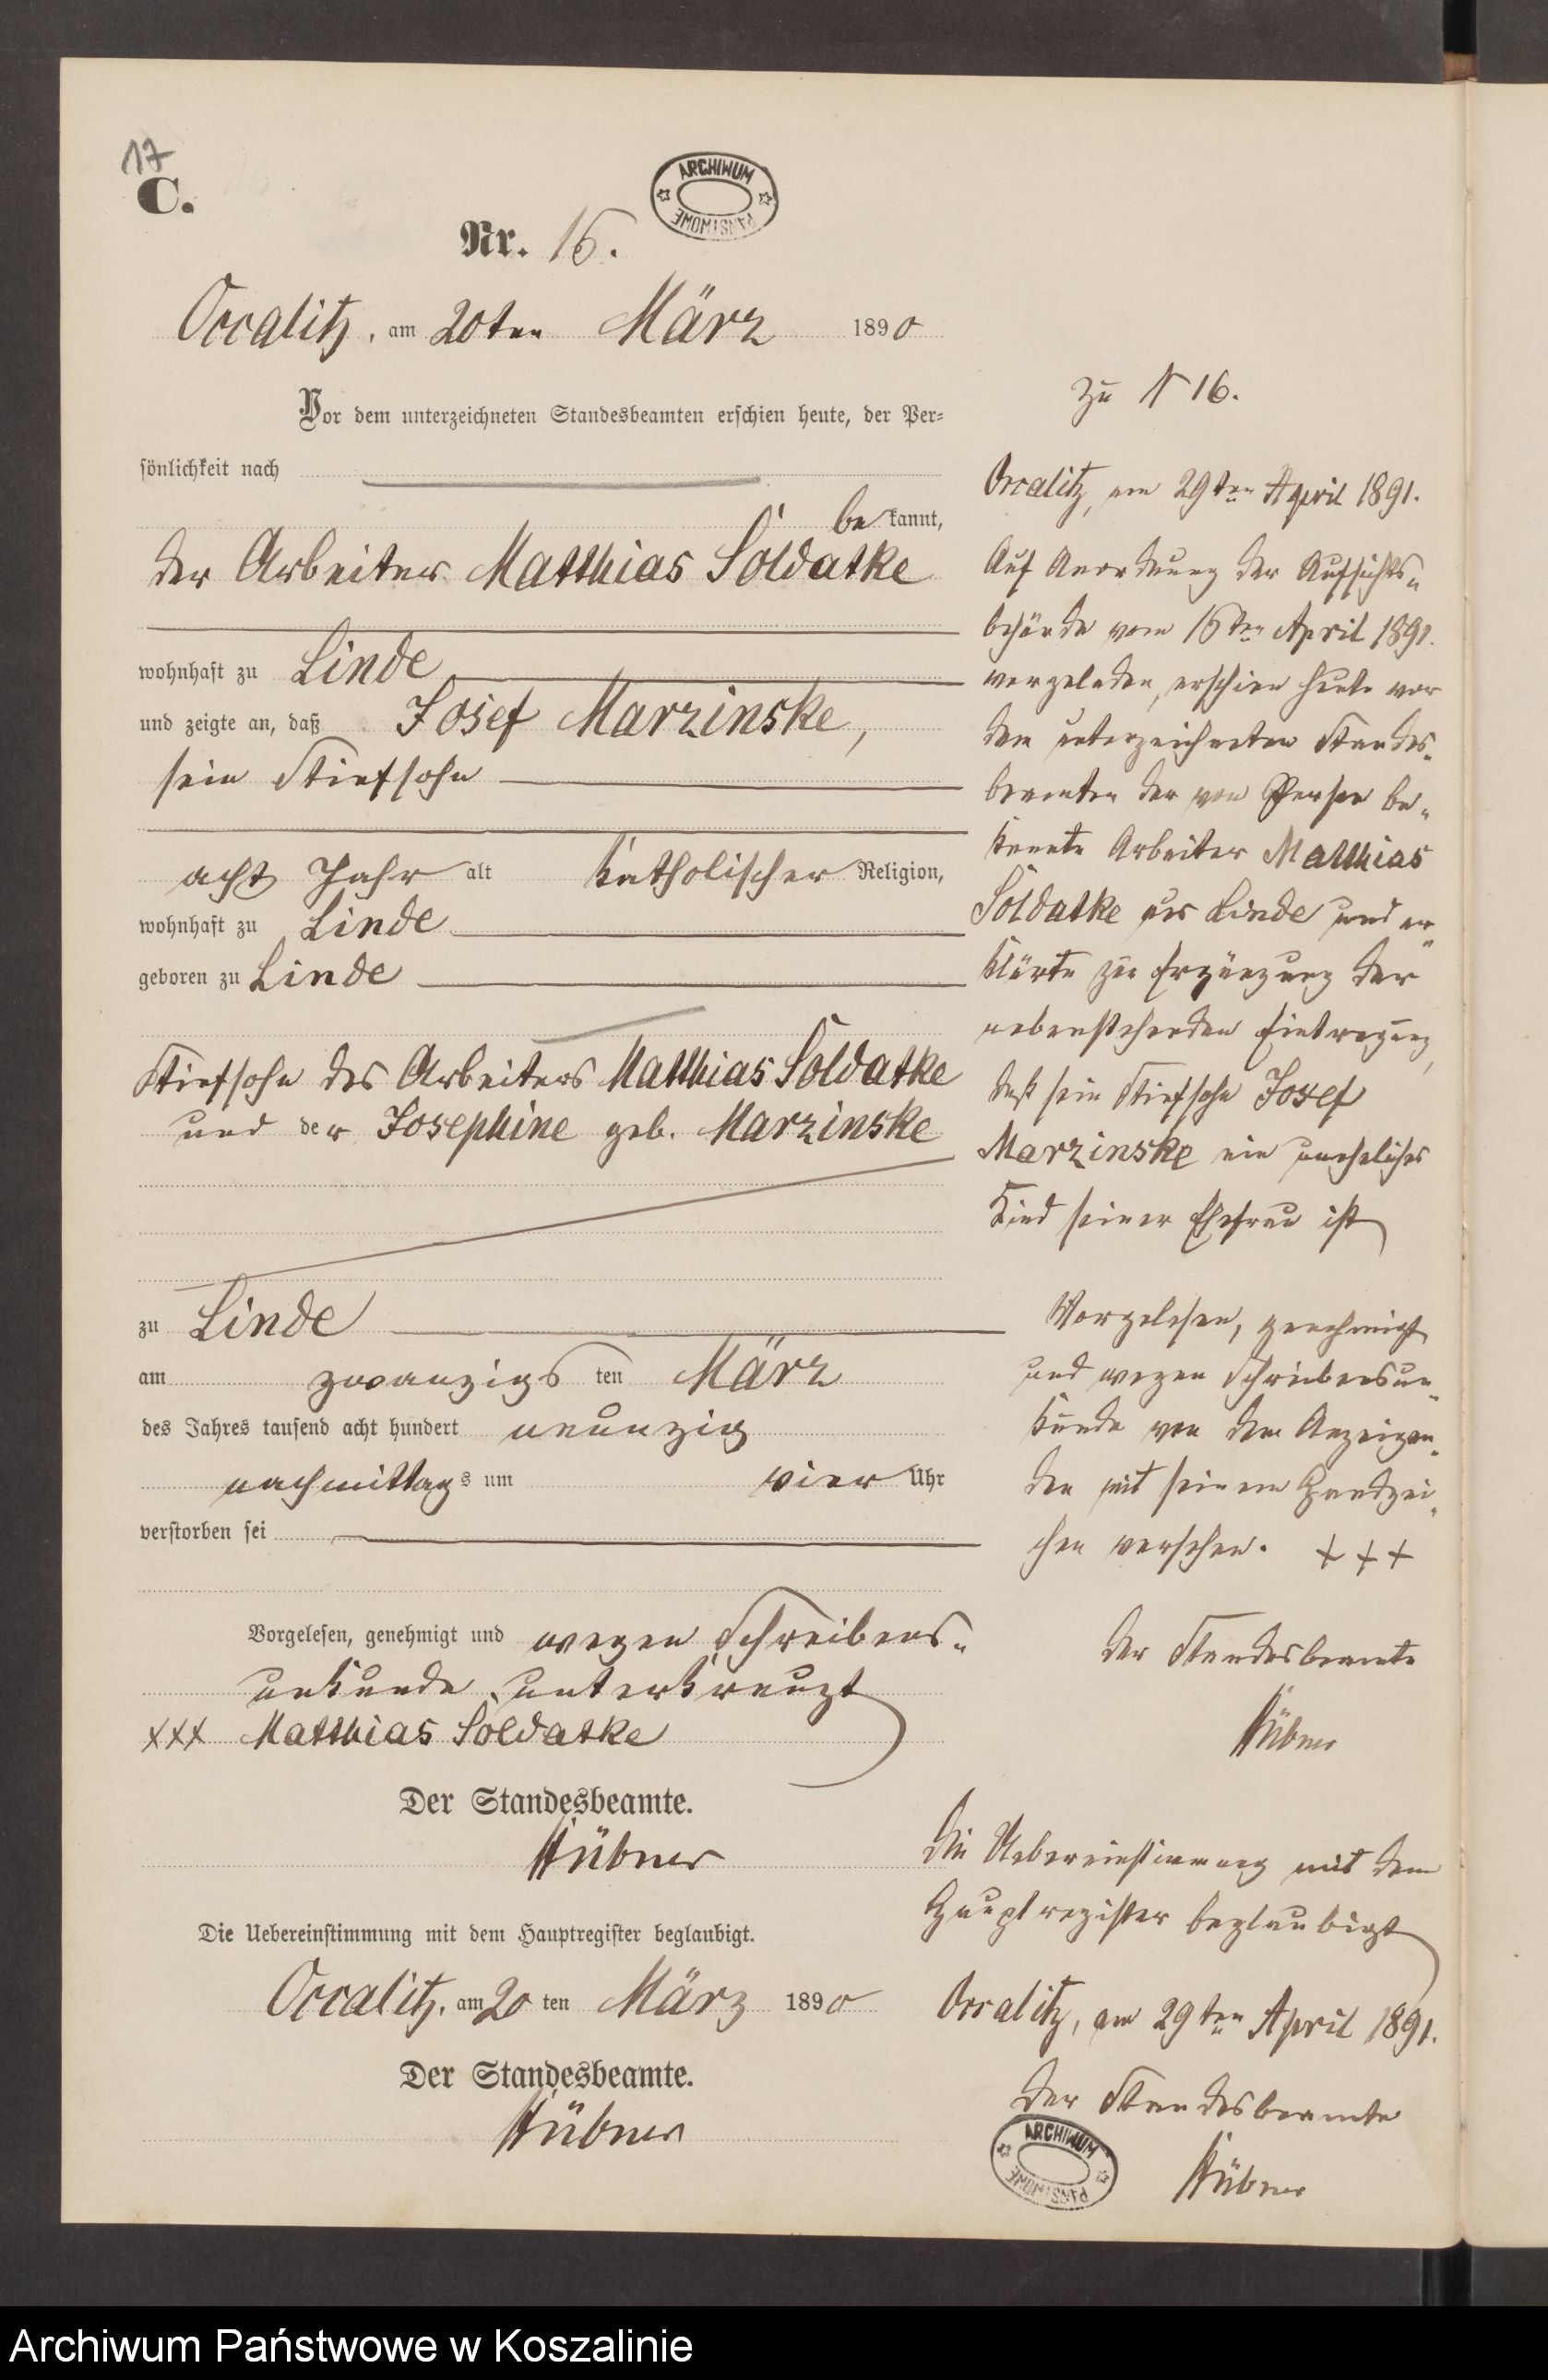 17
C.
ARCHIWUM
PAŃSTWOWE
Nr. 16.
Occalitz, am 20ten März 1890
Vor dem unterzeichneten Standesbeamten erschien heute, der Per-
sönlichkeit nach
bekannt,
der Arbeiter Matthias Soldatke
wohnhaft zu Linde
und zeigte an, daß Josef Marzinske,
sein Stiefsohn
acht Jahr alt katholischer Religion,
wohnhaft zu Linde
geboren zu Linde
Stiefsohn des Arbeiters Matthias Soldatke
und der Josephine geb. Marzinske
zu Linde
am zwanzigsten März
des Jahres tausend acht hundert neunzig
nachmittags um vier Uhr
verstorben sei
Vorgelesen, genehmigt und wegen Schreibens-
unkunde unterkreuzt
XXX Matthias Soldatke
Der Standesbeamte.
Hübner
Die Uebereinstimmung mit dem Hauptregister beglaubigt.
Occalitz, am 20 ten März 1890
Der Standesbeamte.
Hübner
Zu N 16.
Occalitz, am 29ten April 1891.
Auf Anordnung der Aufsichts-
behörde vom 16ten April 1891.
vorgeladen, erschien heute vor
dem unterzeichneten Standes-
beamten der von Person be-
kannte Arbeiter Matthias
Soldatke aus Linde und er-
klärte zur Ergänzung der
nebenstehenden Eintragung,
daß sein Stiefsohn Josef
Marzinske ein uneheliches
Kind seiner Ehefrau ist
Vorgelesen, genehmigt
und wegen Schreibensun-
kunde von dem Anzeigen-
den mit seinem Handzei-
chen versehen. + + +
Der Standesbeamte
Hübner
Die Uebereinstimmung mit dem
Hauptregister beglaubigt
Occalitz, am 29ten April 1891.
Der Standesbeamte
ARCHIWUM
PAŃSTWOWE
Hübner
Archiwum Państwowe w Koszalinie